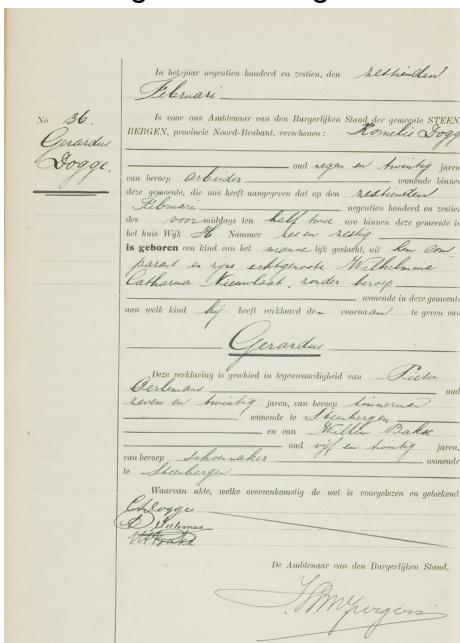 In het jaar negentien honderd en zestien, den zestienden
Februari
No. 36.
Gerardus
Dogge.
Is voor ons Ambtenaar van den Burgerlijken Stand der gemeente STEEN
BERGEN, provincie Noord-Brabant, verschenen: Kornelis Dogg
oud negen en twintig jaren
van beroep arbeider wonende binnen
deze gemeente, die ons heeft aangegeven dat op den zestienden
Februari negentien honderd en zestien
des voor middags ten half twee ure binnen deze gemeente in
het huis Wijk H Nommer zes en zestig
is geboren een kind van het manne lijk geslacht, uit hem com
parant en zijne echtgenoote Wilhelmina
Catharina Nieuwlaat, zonder beroep
wonende in deze gemeente
aan welk kind hij heeft verklaard den voornaam te geven van
Gerardus
Deze verklaring is geschied in tegenwoordigheid van Pieter
Oerlemans oud
zeven en twintig jaren, van beroep timmerman
wonende te Steenbergen
en van Willem Bakx
oud vijf en twintig jaren,
van beroep schoenmaker wonende
te Steenbergen
Waarvan akte, welke overeenkomstig de wet is voorgelezen en geteekend
C Dogge
P Oerlemans
W Bakx
De Ambtenaar van den Burgerlijken Stand,